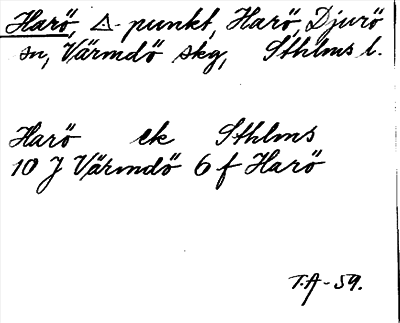 Harö, △-punkt, Harö, Djurö
sn, Värmdö skg, Sthlms l.
Harö ek Sthlms
10 J Värmdö 6 f Harö
T.A-59.